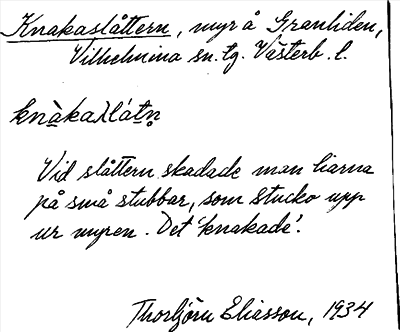 Knakaslåttern, myr å Granliden,
Vilhelmina sn. tg. Västerb. l.
knàkaslátn̥
Vid slåttern skadade man liarna
på små stubbar, som stucko upp
ur myren. Det 'knakade'.
Thorbjörn Eliasson, 1934